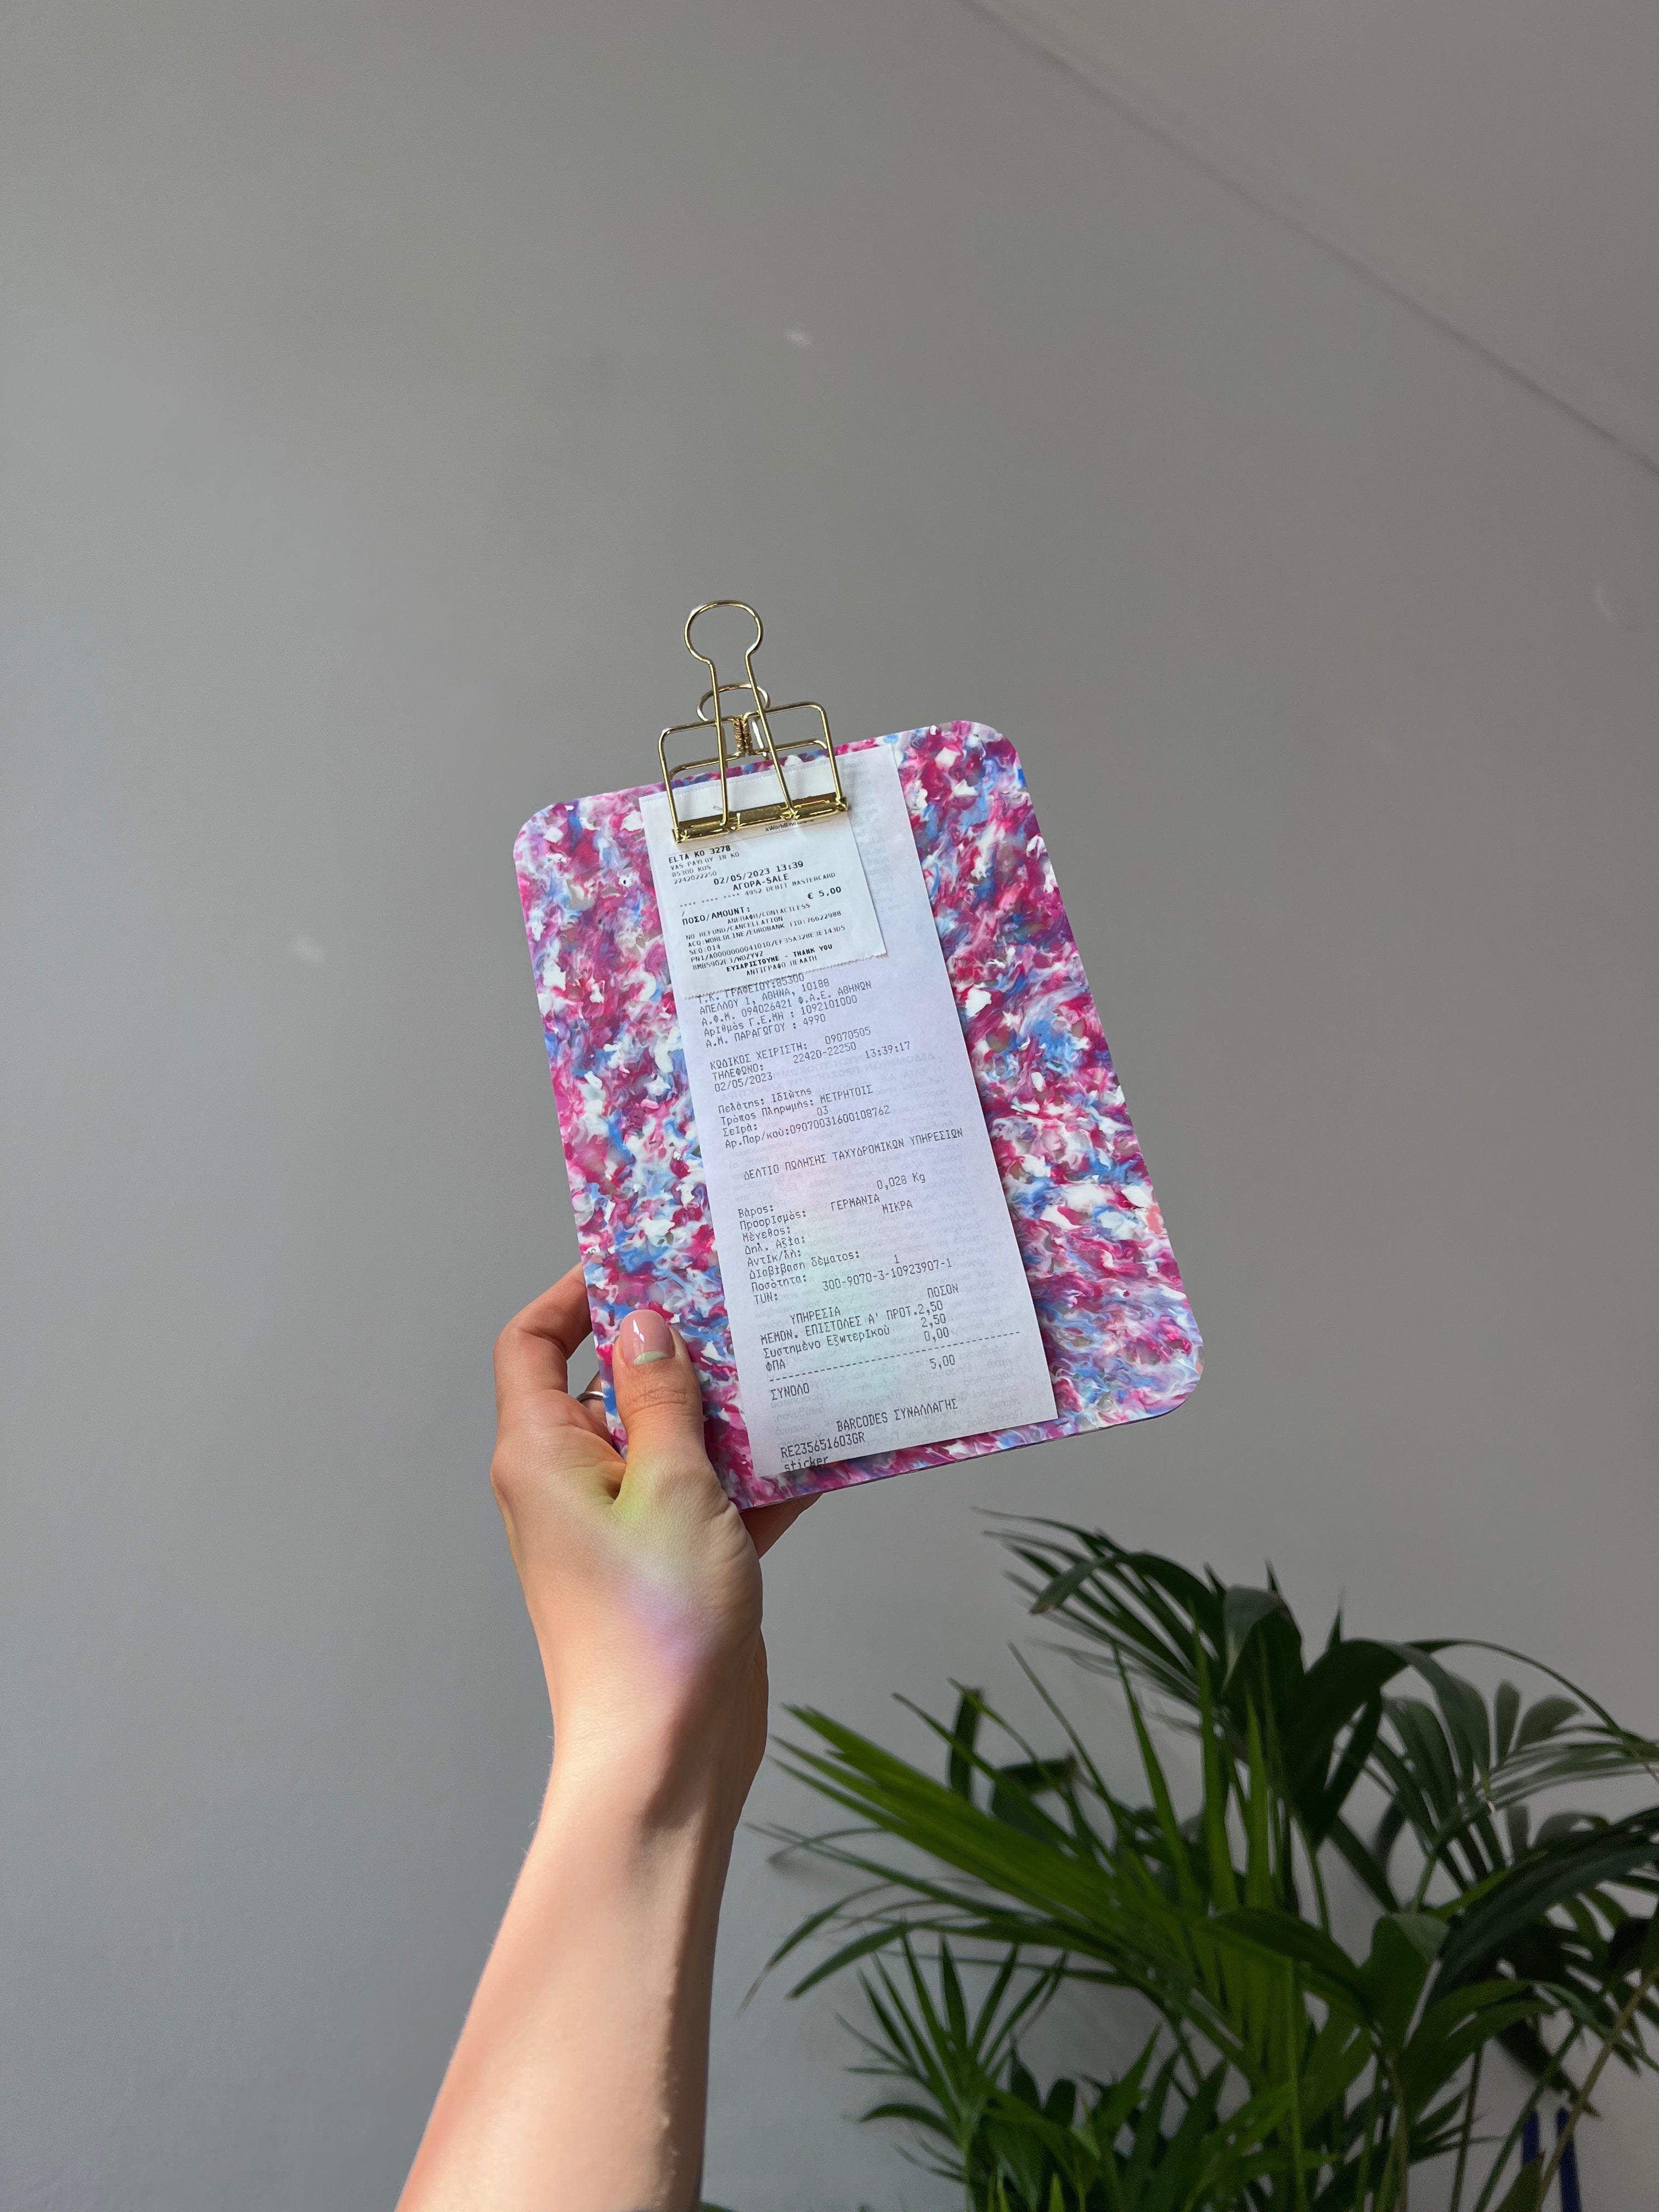 ELTA KO 3278
VAS PAYLOY 1N KO
85300 KOS
2242022250
02/05/2023 13:39
ΑΓΟΡΑ-SALE
**** **** **** 4952 DEBIT MASTERCARD
/
ΠΟΣΟ/AMOUNT: € 5,00
ΑΝΕΠΑΦΗ/CONTACTLESS
NO REFUND/CANCELLATION
ACQ:WORLDLINE/EUROBANK TID:76622988
SEQ:014
ΕΥΧΑΡΙΣΤΟΥΜΕ - THANK YOU
ΑΝΤΙΓΡΑΦΟ ΠΕΛΑΤΗ
Τ.Κ. ΓΡΑΦΕΙΟΥ:85300
ΑΠΕΛΛΟΥ 1, ΑΘΗΝΑ, 10188
Α.Φ.Μ. 094026421 Φ.Α.Ε. ΑΘΗΝΩΝ
Αριθμός Γ.Ε.ΜΗ : 1092101000
Α.Μ. ΠΑΡΑΓΩΓΟΥ : 4990
ΚΩΔΙΚΟΣ ΧΕΙΡΙΣΤΗ: 09070505
ΤΗΛΕΦΩΝΟ: 22420-22250
02/05/2023 13:39:17
Πελάτης: Ιδιώτης
Τρόπος Πληρωμής: ΜΕΤΡΗΤΟΙΣ
Σειρά: 03
Αρ.Παρ/κού:09070031600108762
ΔΕΛΤΙΟ ΠΩΛΗΣΗΣ ΤΑΧΥΔΡΟΜΙΚΩΝ ΥΠΗΡΕΣΙΩΝ
Βάρος: 0,028 Kg
Προορισμός: ΓΕΡΜΑΝΙΑ
Μέγεθος: ΜΙΚΡΑ
Δηλ. Αξία:
Αντικ/λή:
Διαβίβαση δέματος:
Ποσότητα: 1
TUN: 300-9070-3-10923907-1
ΥΠΗΡΕΣΙΑ ΠΟΣΟΝ
ΜΕΜΟΝ. ΕΠΙΣΤΟΛΕΣ Α' ΠΡΟΤ.2,50
Συστημένο Εξωτερικού 2,50
ΦΠΑ 0,00
ΣΥΝΟΛΟ 5,00
BARCODES ΣΥΝΑΛΛΑΓΗΣ
RE235651603GR
sticker